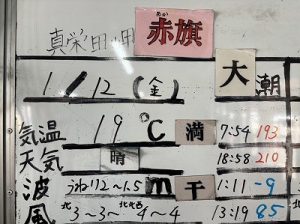 真栄田岬 赤旗
大潮
1/12(金)
気温 19℃ 満 7:54 193
天気 晴 18:58 210
波 うねり2~1.5m 干 1:11 -9
風 北3~3~北北西4~4 13:19 85